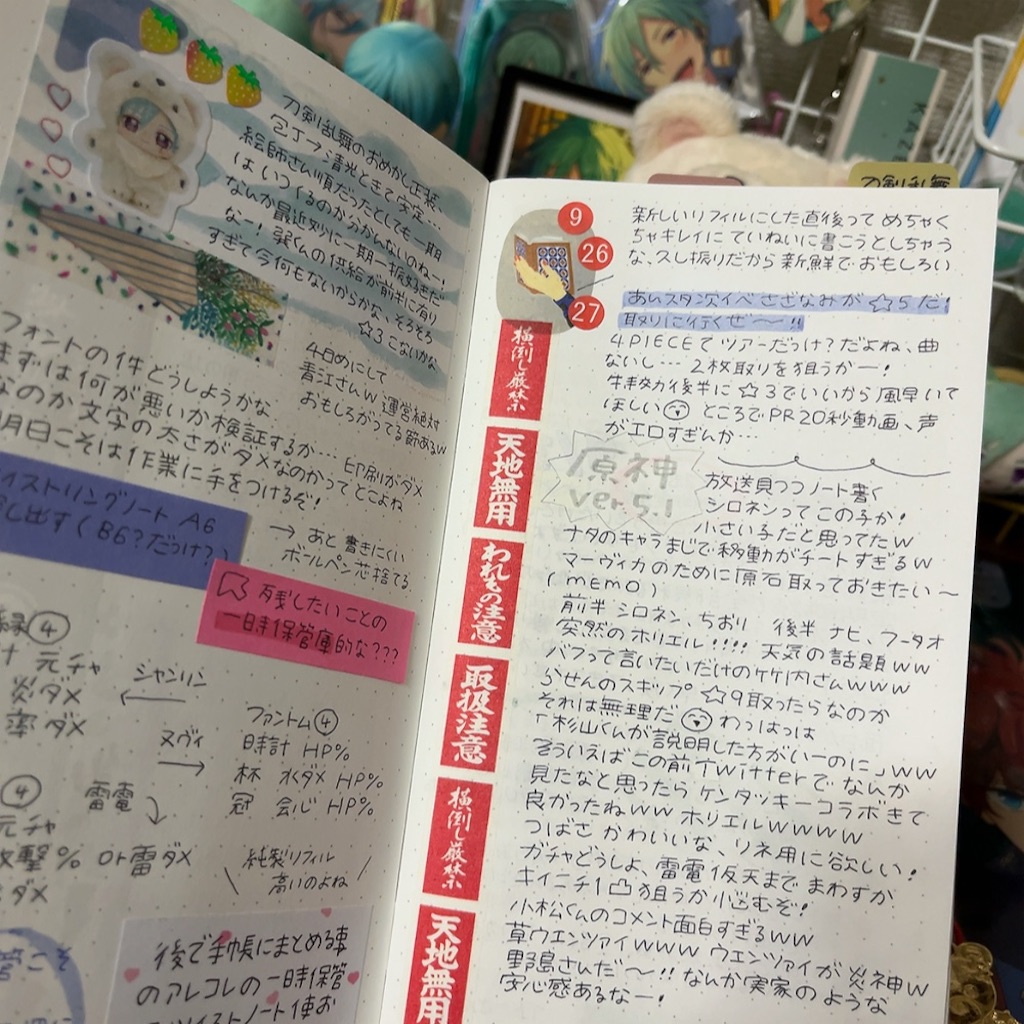 刀剣乱舞のおめかし正装、
包丁→清光ときて安定…
絵師さん順だったとしても一期
はいつくるのか分かんないのねー!
なんか最近妙に一期一振好きだ
なー!巽くんの供給が前半に有り
すぎて今何もないからかな、そろそろ
☆3こないかな
4日めにして
青江さんw運営絶対
おもしろがってる節あるw
フォントの件どうしようかな
まずは何が悪いか検証するか…印刷がダメ
なのか文字の太さがダメなのかってとこよね
明日こそは作業に手をつけるぞ!
イストリングノートA6
し出す(B6?だっけ?)
→あと書きにくい
ボールペン芯捨てる
残したいことの
一時保管庫的な???
縁④
元チャ
炎ダメ
率ダメ
シャンリン
ヌヴィ
ファントム④
時計 HP%
杯 水ダメ HP%
冠 会心 HP%
④
元チャ
攻撃% or雷ダメ
ダメ
雷電
純製リフィル
高いのよね
後で手帳にまとめる車
のアレコレの一時保管
ツイストノート使お
管こそ
刀剣乱舞
KAZE
9
26
27
横倒し厳禁
天地無用
われもの注意
取扱注意
横倒し厳禁
天地無用
新しいリフィルにした直後ってめちゃく
ちゃキレイにていねいに書こうとしちゃう
な、久し振りだから新鮮でおもしろい
あんスタ次イベさざなみが☆5だ!
取りに行くぜ〜!!
4PIECEでツアーだっけ?だよね、曲
ないし…2枚取りを狙うかー!
特効後半に☆3でいいから風早いて
ほしい ところでPR20秒動画、声
がエロすぎんか…
原神
ver5.1
放送見つつノート書く
シロネンってこの子か!
小さい子だと思ってたw
ナタのキャラまじで移動がチートすぎるw
マーヴィカのために原石取っておきたい〜
(memo)
前半 シロネン、ちおり 後半 ナヒ、フータオ
突然のホリエル!!!! 天気の話題ww
バフって言いたいだけの竹内さんwww
らせんのスキップ☆9取ったらなのか
それは無理だ わっはっは
「杉山くんが説明した方がいーのに」ww
そういえばこの前Twitterでなんか
見たなと思ったらケンタッキーコラボきて
良かったねww ホリエルwwww
つばさ かわいいな、リネ用に欲しい!
ガチャどうしよ、雷電仮天までまわすか
キィニチ1凸狙うか心悩むぞ!
小松くんのコメント面白すぎるww
草ウエンツァイwww ウエンツァイが炎神w
野島さんだ〜!!なんか実家のような
安心感あるなー!